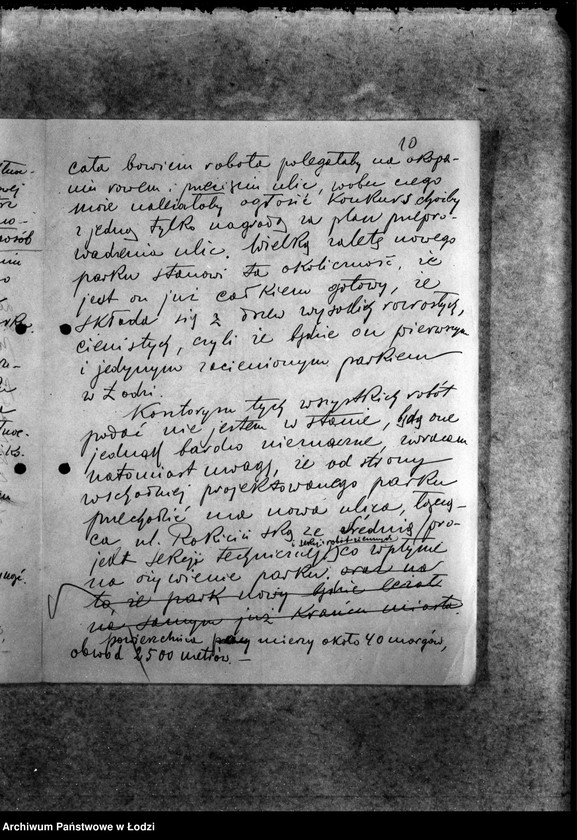 10
cała bowiem robota polegałaby na okopa-
niu rowem i przecięciu ulic, wobec czego
może należałoby ogłosić konkurs choćby
z jedną tylko nagrodą za plan przepro-
wadzenia ulic. Wielką zaletę nowego
parku stanowi ta okoliczność, że
jest on już całkiem gotowy, że
składa się z drzew wysokich rozrosłych,
cienistych, czyli że będzie on pierwszym
i jedynym zacienionym parkiem
w Łodzi.
Kosztorysu tych wszystkich robót
podać nie jestem w stanie, będą one
jednak bardzo nieznaczne, zwracam
natomiast uwagę, że od strony
wschodniej projektowanego parku
przechodzić ma nowa ulica, łączą-
ca ul. Rokicińską ze Średnią /pro-
i sekcji robót ziemnych
jekt sekcji technicznej/ co wpłynie
na ożywienie parku. oraz na
to, że park nowy będzie leżał
na samym już krańcu miasta.
powierzchnia mierzy około 40 morgów,
obwód 2500 metrów. —
Archiwum Państwowe w Łodzi